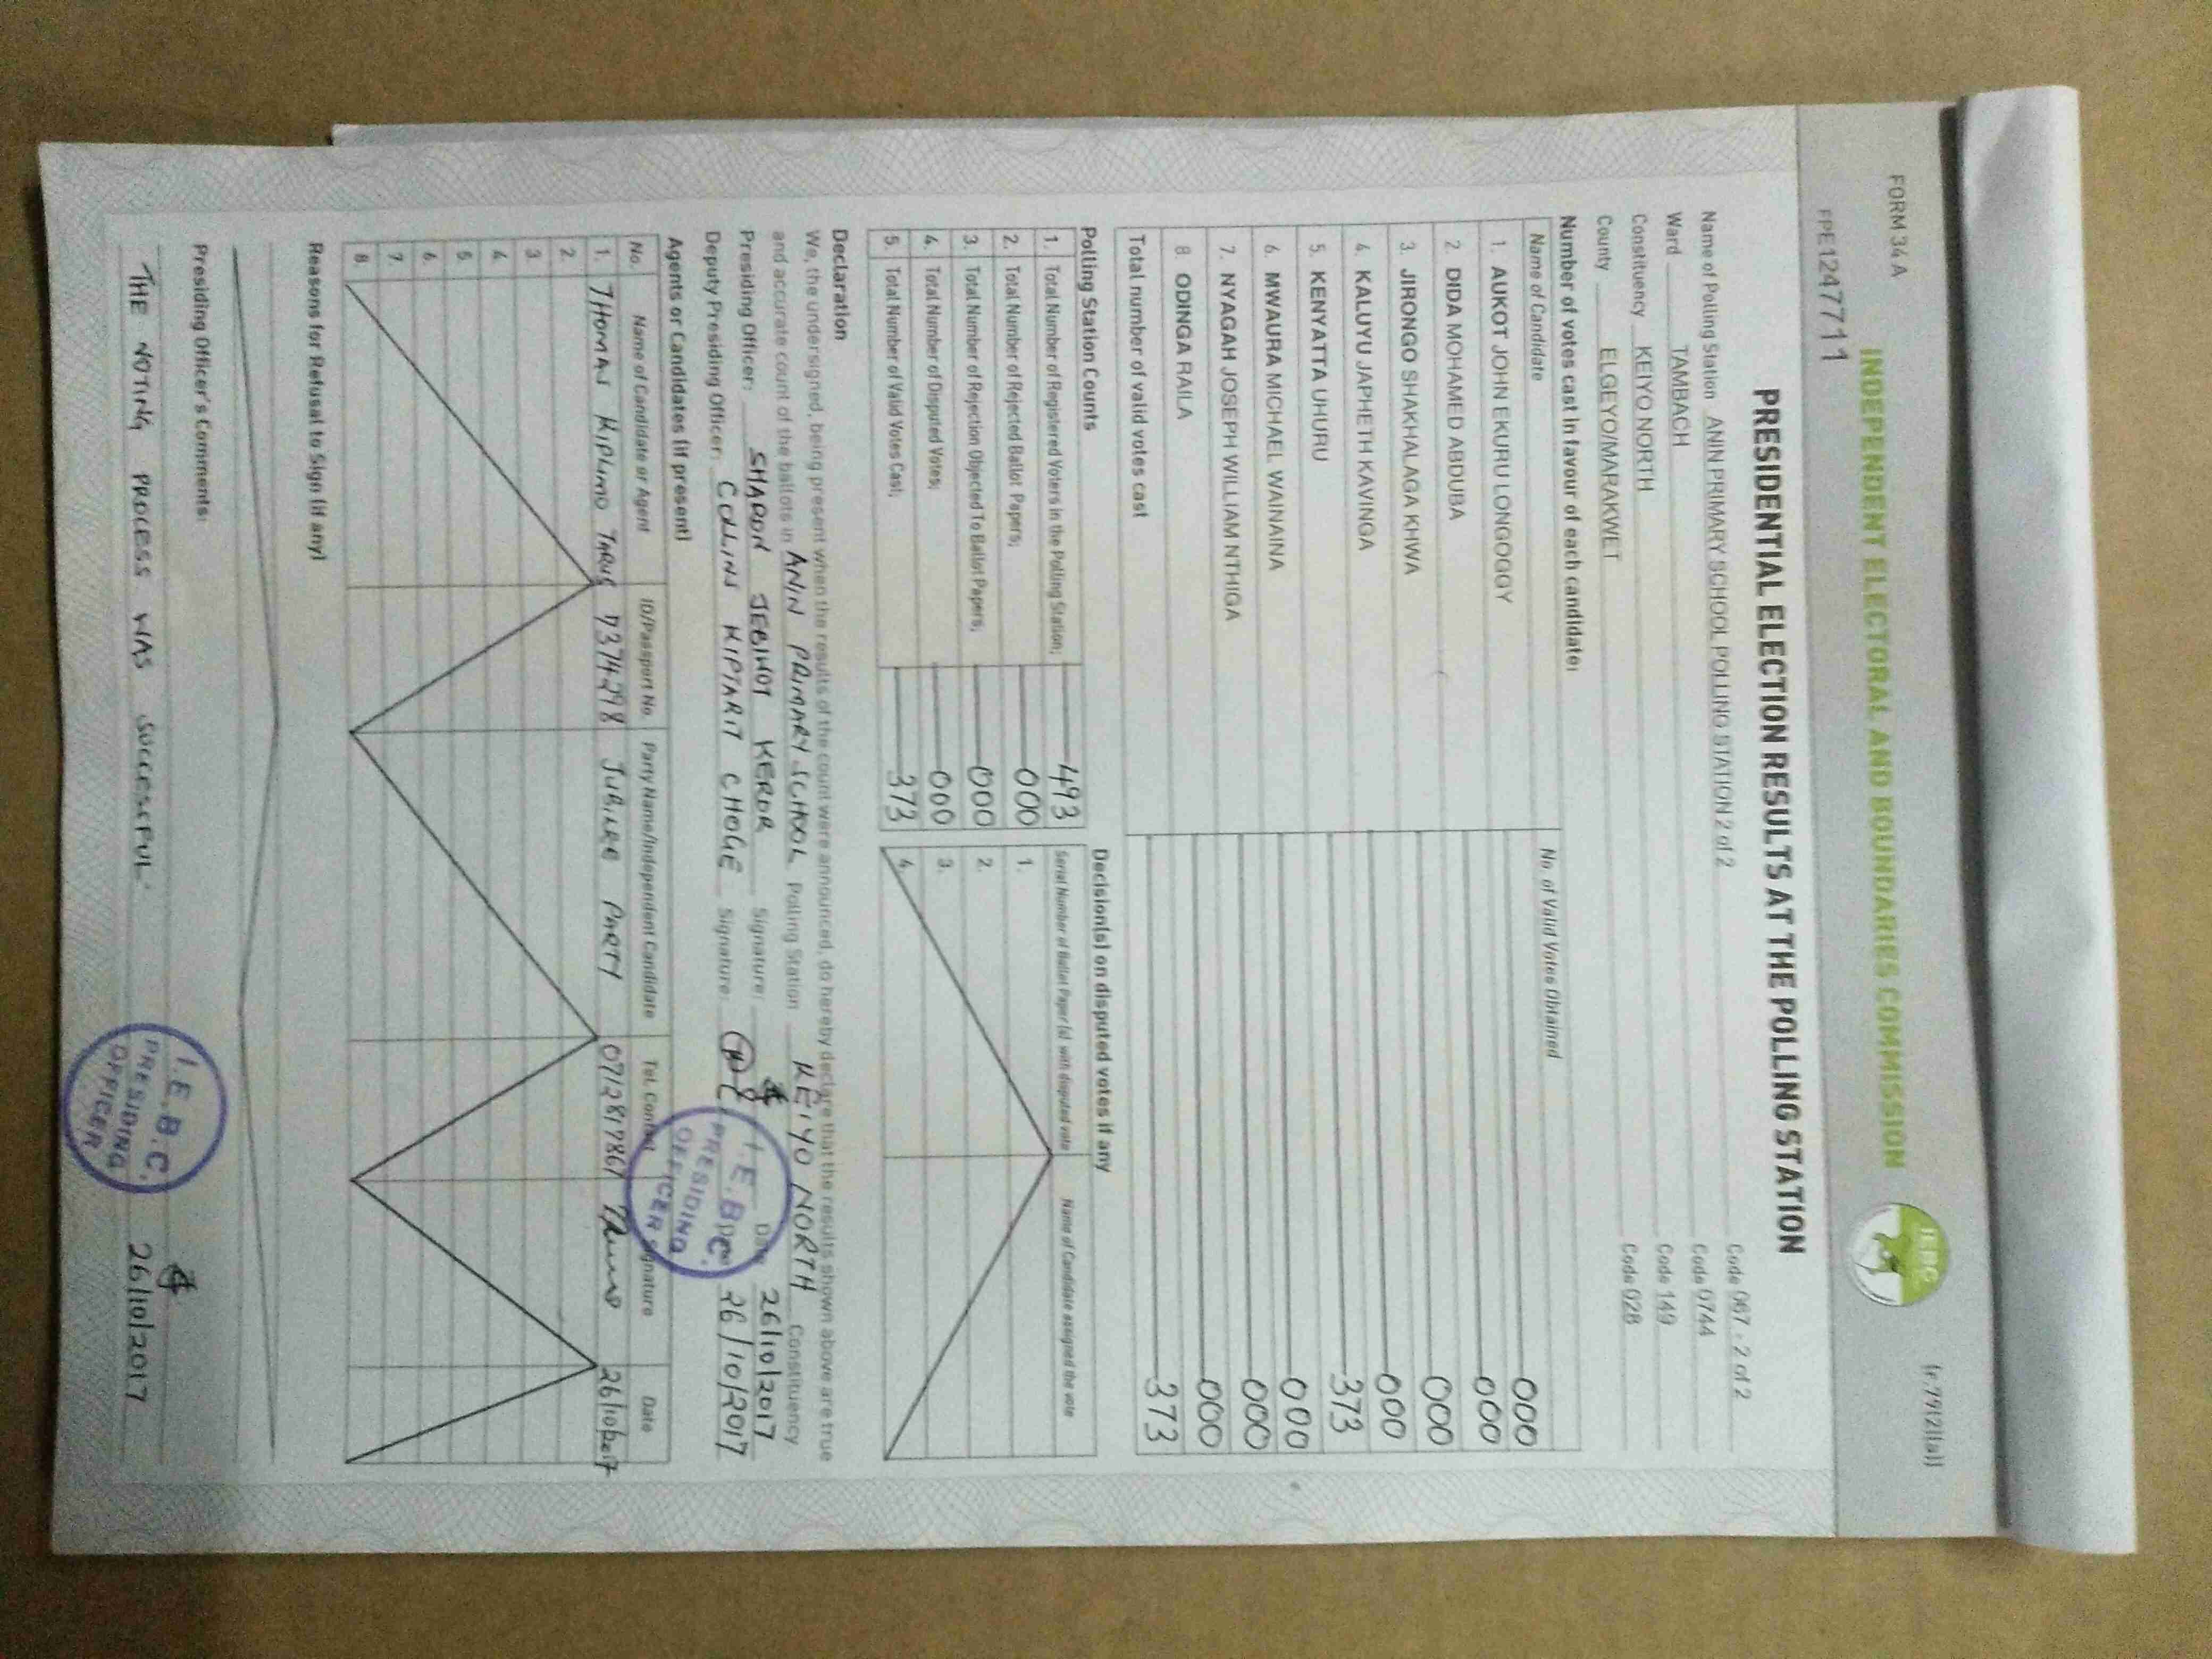 FORM 34 A
(r.79(2)(a))
INDEPENDENT ELECTORAL AND BOUNDARIES COMMISSION
IEBC
FPE1247711
PRESIDENTIAL ELECTION RESULTS AT THE POLLING STATION
Name of Polling Station ANIN PRIMARY SCHOOL POLLING STATION 2 of 2 Code 067 - 2 of 2
Ward TAMBACH Code 0744
Constituency KEIYO NORTH Code 149
County ELGEYO/MARAKWET Code 028
Number of votes cast in favour of each candidate:
Name of Candidate No. of Valid Votes Obtained
1. AUKOT JOHN EKURU LONGOGGY 000
2. DIDA MOHAMED ABDUBA 000
3. JIRONGO SHAKHALAGA KHWA 000
4. KALUYU JAPHETH KAVINGA 000
5. KENYATTA UHURU 373
6. MWAURA MICHAEL WAINAINA 000
7. NYAGAH JOSEPH WILLIAM NTHIGA 000
8. ODINGA RAILA 000
Total number of valid votes cast 373
Polling Station Counts
1. Total Number of Registered Voters in the Polling Station; 493
2. Total Number of Rejected Ballot Papers; 000
3. Total Number of Rejection Objected To Ballot Papers; 000
4. Total Number of Disputed Votes; 000
5. Total Number of Valid Votes Cast; 373
Decision(s) on disputed votes if any
Serial Number of Ballot Paper (s) with disputed vote Name of Candidate assigned the vote
1.
2.
3.
4.
Declaration
We, the undersigned, being present when the results of the count were announced, do hereby declare that the results shown above are true
and accurate count of the ballots in ANIN PRIMARY SCHOOL Polling Station KEIYO NORTH Constituency
Presiding Officer: SHARON JEBIWOT KEROR Signature: Date 26/10/2017
Deputy Presiding Officer: COLLINS KIPTARIT CHOGE Signature: Date 26/10/2017
I.E.B.C.
PRESIDING
OFFICER
Agents or Candidates (if present)
No. Name of Candidate or Agent ID/Passport No. Party Name/Independent Candidate Tel. Contact Signature Date
1. THOMAS KIPLIMO TARUS 7374298 JUBILEE PARTY 0712817867 26/10/2017
2.
3
4
5
6.
7.
8.
Reasons for Refusal to Sign (if any)
Presiding Officer's Comments:
THE NOTING PROCESS WAS SUCCESSFUL. 26/10/2017
I.E.B.C.
PRESIDING
OFFICER